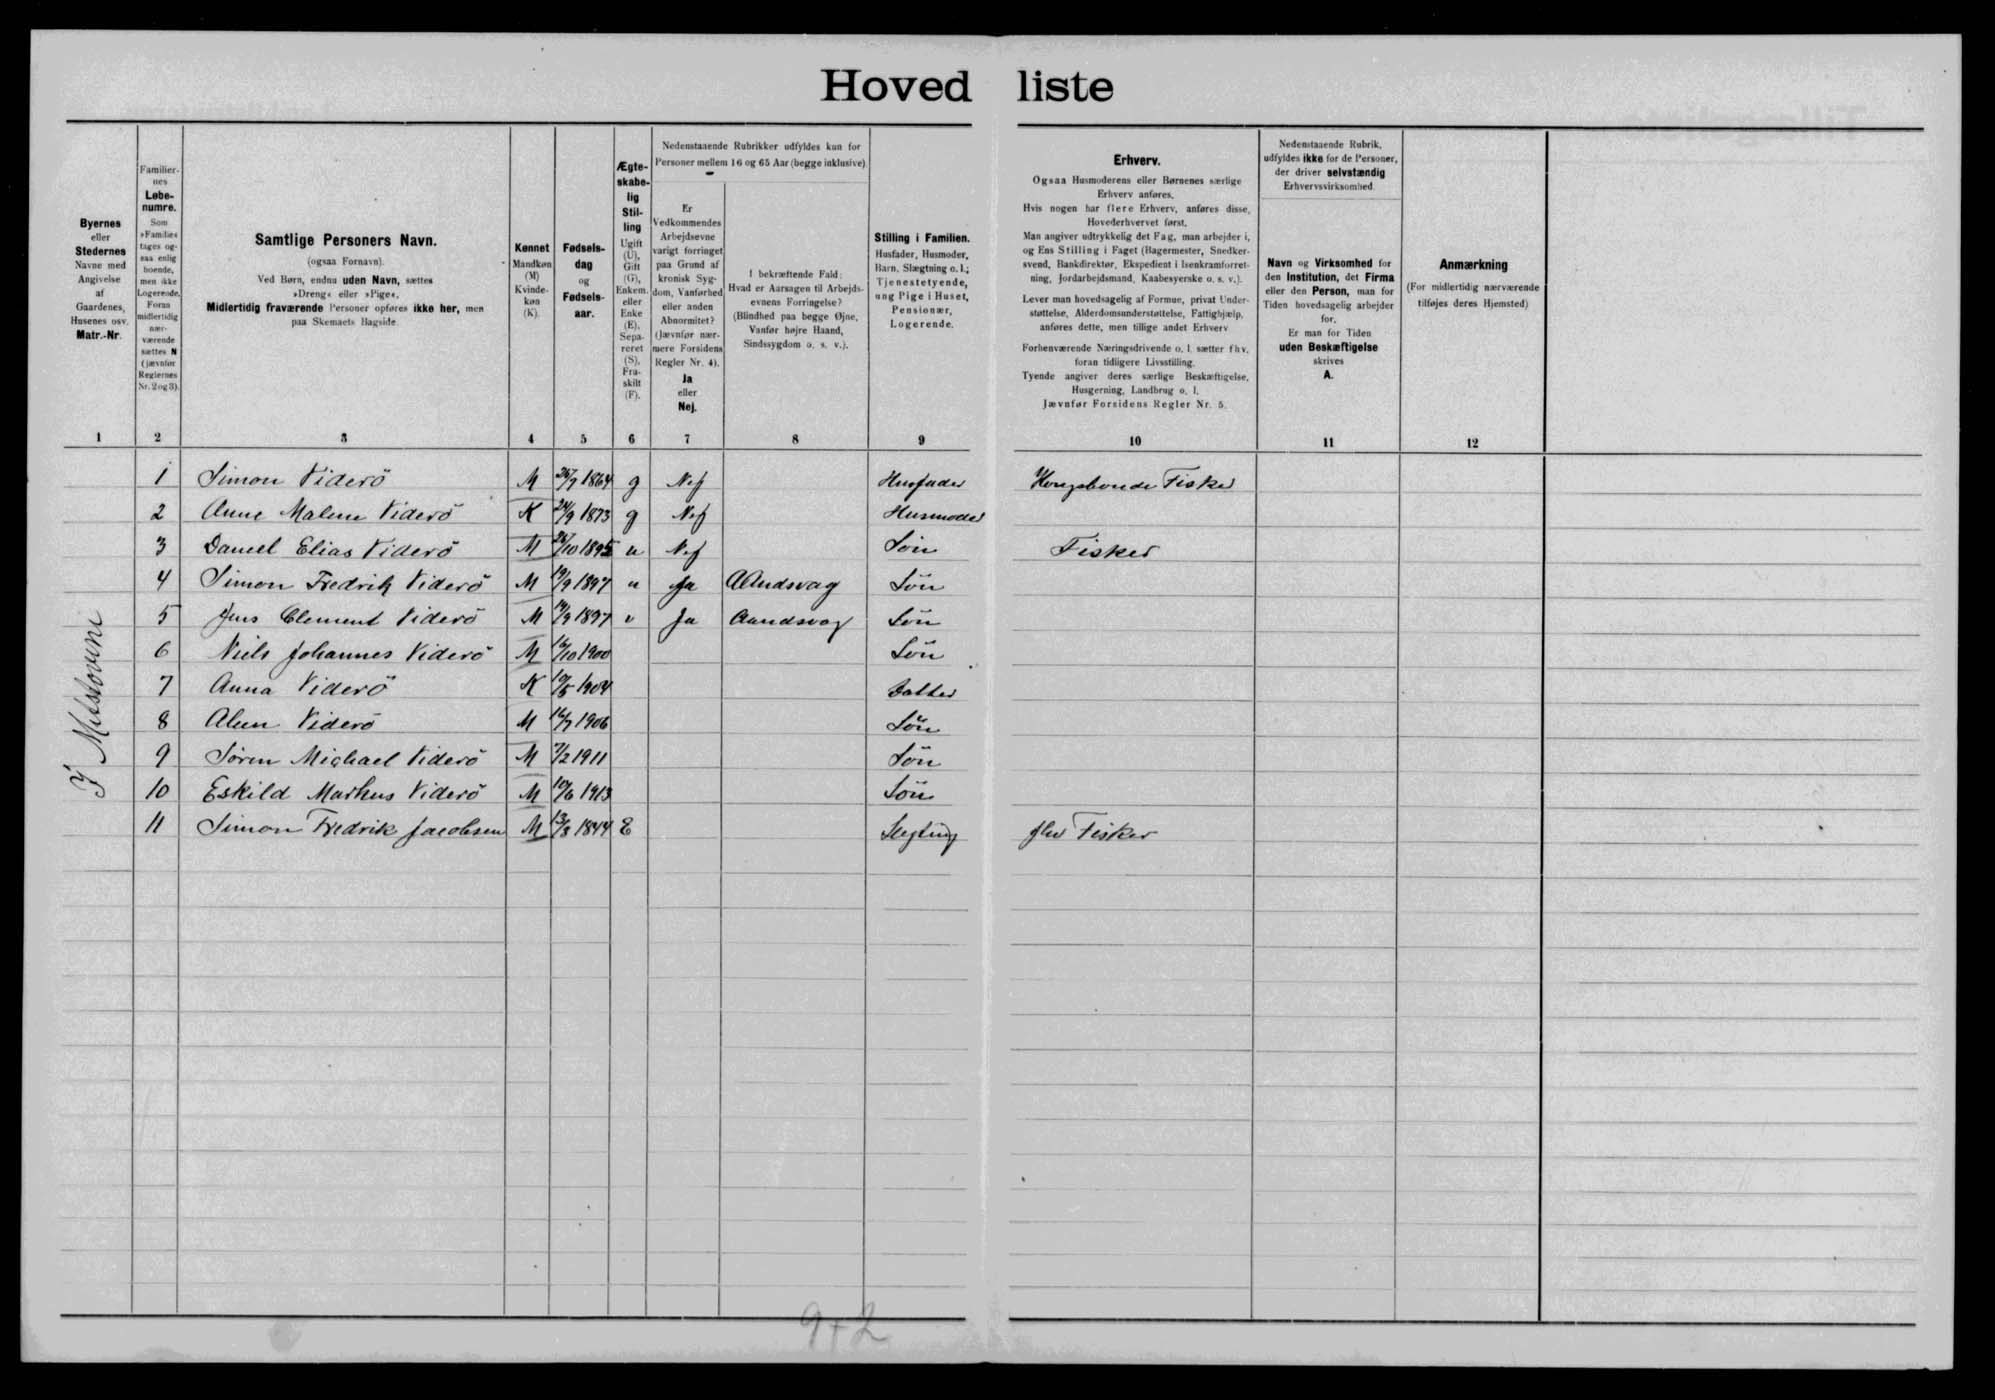 Hovedliste
Byernes
eller
Stedernes
Navne med
Angivelse
af
Gaardenes,
Husenes osv.
Matr.-Nr.
Familier-
nes
Løbe-
numre.
Som
»Familie«
tages og-
saa enlig
boende,
men ikke
Logerende.
Foran
midlertidig
nær-
værende
sættes N
(jævnfør
Reglernes
Nr. 2 og 3).
Samtlige Personers Navn.
(ogsaa Fornavn).
Ved Børn, endnu uden Navn, sættes
»Dreng« eller »Pige«.
Midlertidig fraværende Personer opføres ikke her, men
paa Skemaets Bagside.
Kønnet
Mandkøn
(M)
Kvinde-
køn
(K).
Fødsels-
dag
og
Fødsels-
aar.
Ægte-
skabe-
lig
Stil-
ling
Ugift
(U),
Gift
(G),
Enkem.
eller
Enke
(E),
Sepa-
reret
(S),
Fra-
skilt
(F).
Nedenstaaende Rubrikker udfyldes kun for
Personer mellem 16 og 65 Aar (begge inklusive).
Er
Vedkommendes
Arbejdsevne
varigt forringet
paa Grund af
kronisk Syg-
dom, Vanførhed
eller anden
Abnormitet?
(Jævnfør nær-
mere Forsidens
Regler Nr. 4).
Ja
eller
Nej.
I bekræftende Fald:
Hvad er Aarsagen til Arbejds-
evnens Forringelse?
(Blindhed paa begge Øjne,
Vanfør højre Haand,
Sindssygdom o. s. v.).
Stilling i Familien.
Husfader, Husmoder,
Barn, Slægtning o. l.;
Tjenestetyende,
ung Pige i Huset,
Pensionær,
Logerende.
Erhverv.
Ogsaa Husmoderens eller Børnenes særlige
Erhverv anføres.
Hvis nogen har flere Erhverv, anføres disse,
Hovederhvervet først.
Man angiver udtrykkelig det Fag, man arbejder i,
og Ens Stilling i Faget (Bagermester, Snedker-
svend, Bankdirektør, Ekspedient i Isenkramforret-
ning, Jordarbejdsmand, Kaabesyerske o. s. v.).
Lever man hovedsagelig af Formue, privat Under-
støttelse, Alderdomsunderstøttelse, Fattighjælp,
anføres dette, men tillige andet Erhverv
Forhenværende Næringsdrivende o. l. sætter fhv.
foran tidligere Livsstilling.
Tyende angiver deres særlige Beskæftigelse,
Husgerning, Landbrug o. l.
Jævnfør Forsidens Regler Nr. 5.
Nedenstaaende Rubrik,
udfyldes ikke for de Personer,
der driver selvstændig
Erhvervsvirksomhed.
Navn og Virksomhed for
den Institution, det Firma
eller den Person, man for
Tiden hovedsagelig arbejder
for.
Er man for Tiden
uden Beskæftigelse
skrives
A.
Anmærkning
(For midlertidig nærværende
tilføjes deres Hjemsted)
1 2 3 4 5 6 7 8 9 10 11 12
1 Simon Viderö M 26/7 1864 g Nej Husfader Kongsbonde Fisker
2 Anne Malene Viderö K 24/9 1873 g Nej Husmoder
3 Daniel Elias Viderö M 26/10 1895 u Nej Søn Fisker
4 Simon Fredrik Viderö M 19/9 1897 u Ja AAndsvag Søn
5 Jens Clement Viderö M 19/9 1897 u Ja Aandsvag Søn
6 Niels Johannes Viderö M 16/10 1900 Søn
7 Anna Viderö K 10/5 1904 Datter
8 Viderö M 16/7 1906 Søn
9 Sören Michael Viderö M 7/2 1911 Søn
10 Eskild Markus Viderö M 10/6 1913 Søn
11 Simon Fredrik Jacobsen M 13/8 1844 E Slegtning fhv Fisker
9+2